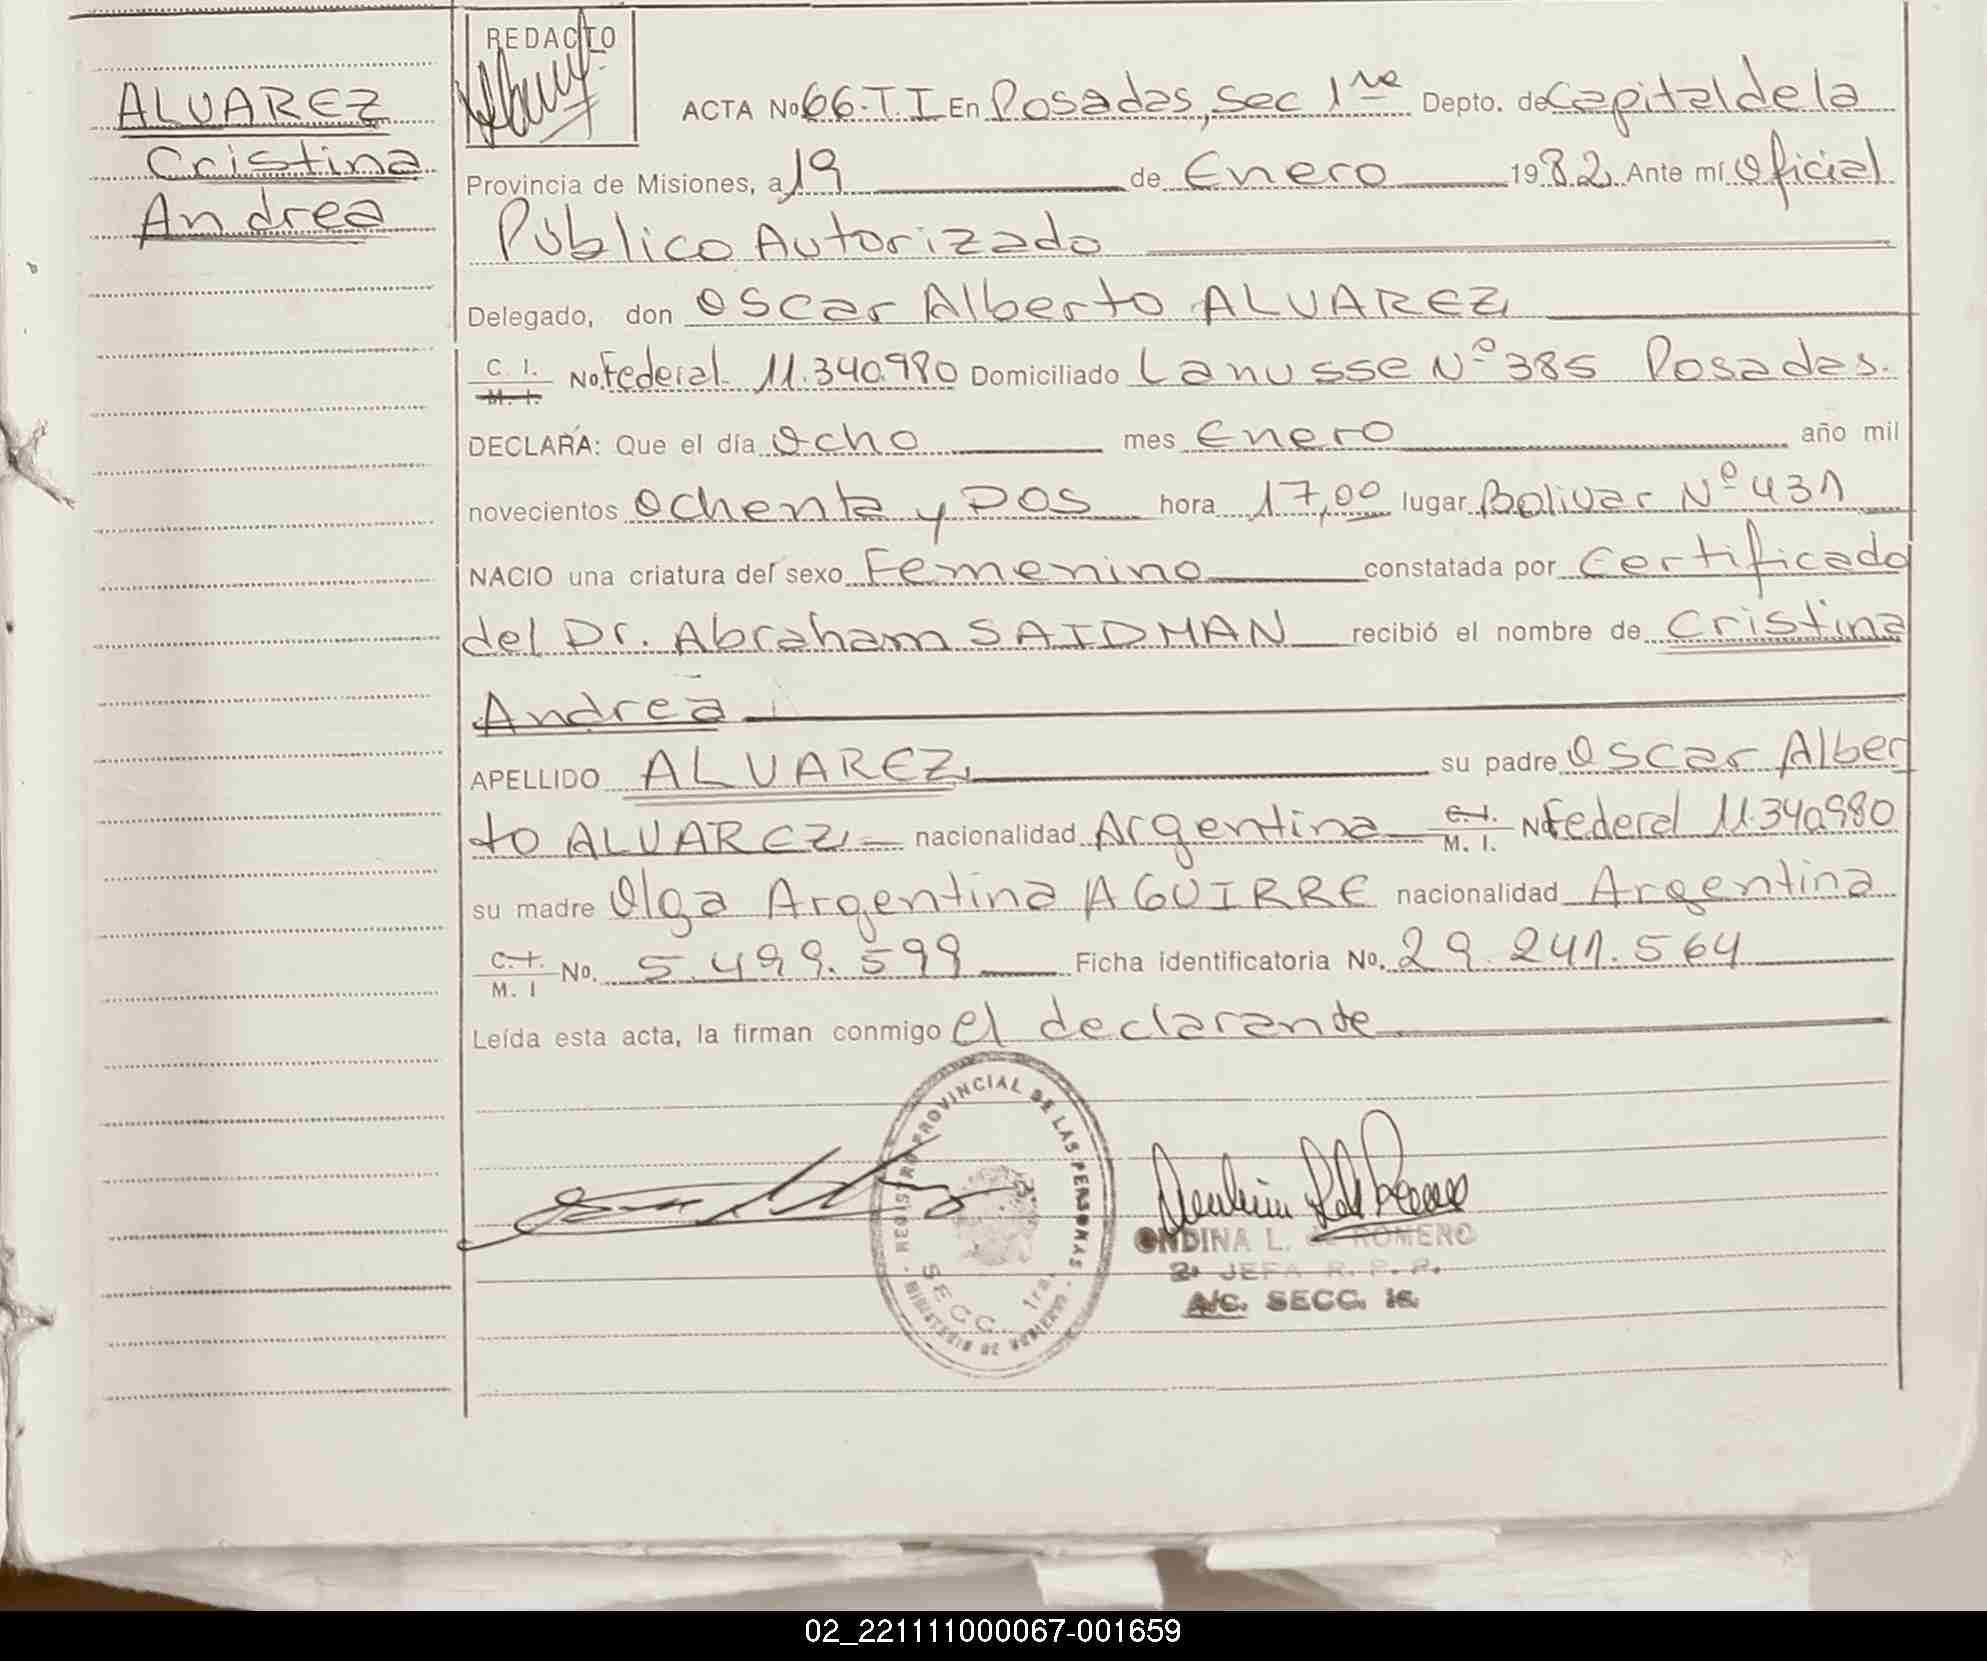 REDACTO
ALVAREZ
Cristina
Andrea
ACTA No 66-T.I En Posadas, sec 1ra Depto. de Capital de la
Provincia de Misiones, a 19 de Enero 1982 Ante mí Oficial
Público Autorizado
Delegado, don Oscar Alberto ALVAREZ
C. I.
M. I.
No. Federal 11.340.980 Domiciliado Lanusse Nº 385 Posadas.
DECLARA: Que el día Ocho mes Enero año mil
novecientos Ochenta y DOS hora 17,00 lugar Bolivar Nº 431
NACIO una criatura del sexo Femenino constatada por Certificado
del Dr. Abraham SAIDMAN recibió el nombre de Cristina
Andrea
APELLIDO ALVAREZ su padre Oscar Alber
to ALVAREZ nacionalidad Argentina C. I. No Federal 11.340.980
M. I.
su madre Olga Argentina AGUIRRE nacionalidad Argentina
C. I.
M. I
No. 5.499.599 Ficha identificatoria No. 29.241.564
Leída esta acta, la firman conmigo el declarante
REGISTRO PROVINCIAL DE LAS PERSONAS
SECC. 1ra.
MINISTERIO DE GOBIERNO
ONDINA L. de ROMERO
2. JEFA R. P. P.
A/C. SECC. 1a.
02_221111000067-001659